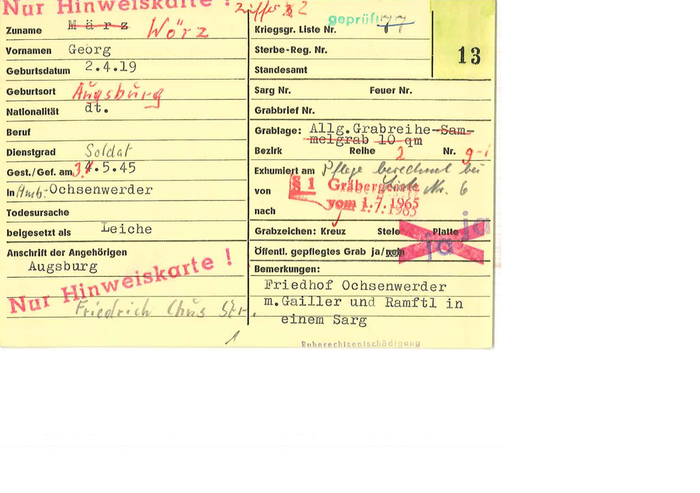 Nur Hinweiskarte !
Ziffer 2
Zuname März Wörz
Vornamen Georg
Geburtsdatum 2.4.19
Geburtsort Augsburg
Nationalität dt.
Beruf
Dienstgrad Soldat
Gest./Gef. am 3.4.5.45
In Amb. Ochsenwerder
Todesursache
beigesetzt als Leiche
Anschrift der Angehörigen
Augsburg
Nur Hinweiskarte !
Friedrich Str.
Kriegsgr. Liste Nr. geprüft 77
Sterbe-Reg. Nr.
13
Standesamt
Sarg Nr. Feuer Nr.
Grabbrief Nr.
Grablage: Allg.Grabreihe-Sam-
melgrab 10 qm
Bezirk Reihe 2 Nr. 9-1
Exhumiert am Pflege berechnet bei
von Liste Nr. 6
§ 1 Gräbergesetz
nach vom 1.7.1965
Grabzeichen: Kreuz Stele Platte ja
Öffentl. gepflegtes Grab ja/nein ja
Bemerkungen:
Friedhof Ochsenwerder
m.Gailler und Ramftl in
einem Sarg
Ruherechtsentschädigung